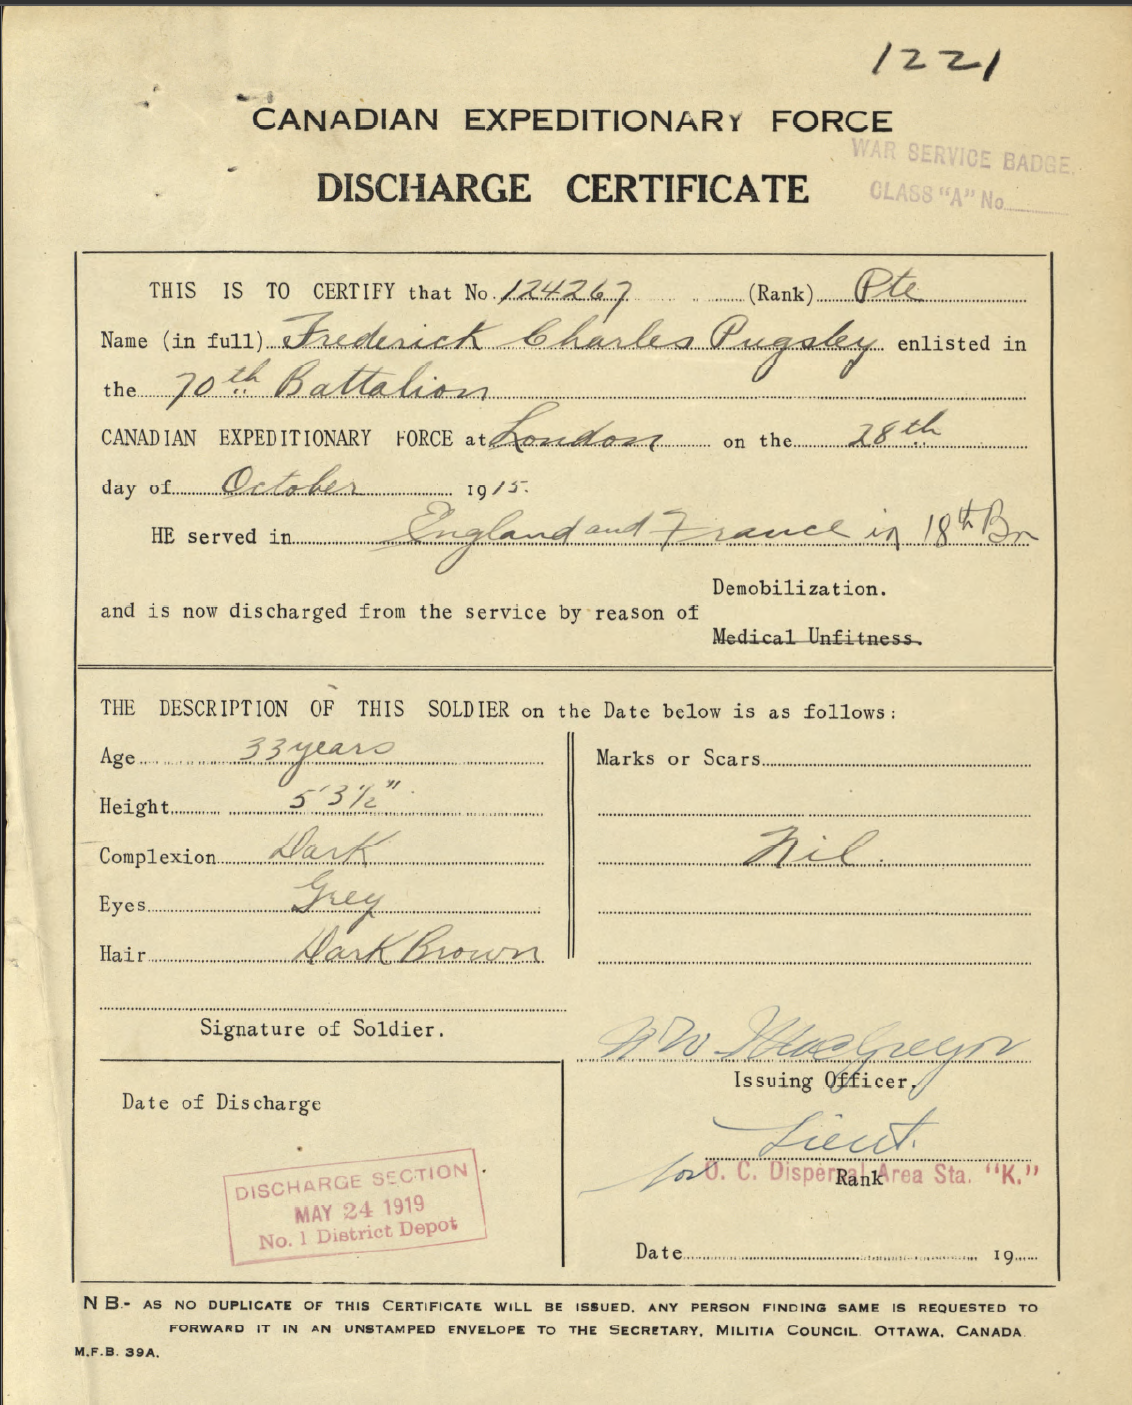 1221
CANADIAN EXPEDITIONARY FORCE
WAR SERVICE BADGE.
DISCHARGE CERTIFICATE
CLASS "A" No
THIS IS TO CERTIFY that No. 124267 (Rank) Pte
Name (in full) Frederick Charles Pugsley enlisted in
the 70th Battalion
CANADIAN EXPEDITIONARY FORCE at London on the 28th
day of October 1915.
HE served in England and France in 18th Bn
Demobilization.
and is now discharged from the service by reason of
Medical Unfitness.
THE DESCRIPTION OF THIS SOLDIER on the Date below is as follows:
Age 33 years
Height 5'3½"
Complexion Dark
Eyes Grey
Hair Dark Brown
Marks or Scars
Nil.
Signature of Soldier.
MacGregor
Issuing Officer.
Lieut.
for O. C. Dispersal Area Sta. "K."
Rank
Date 19
Date of Discharge
DISCHARGE SECTION
MAY 24 1919
No. 1 District Depot
NB.- AS NO DUPLICATE OF THIS CERTIFICATE WILL BE ISSUED, ANY PERSON FINDING SAME IS REQUESTED TO
FORWARD IT IN AN UNSTAMPED ENVELOPE TO THE SECRETARY, MILITIA COUNCIL OTTAWA, CANADA.
M.F.B. 39A.